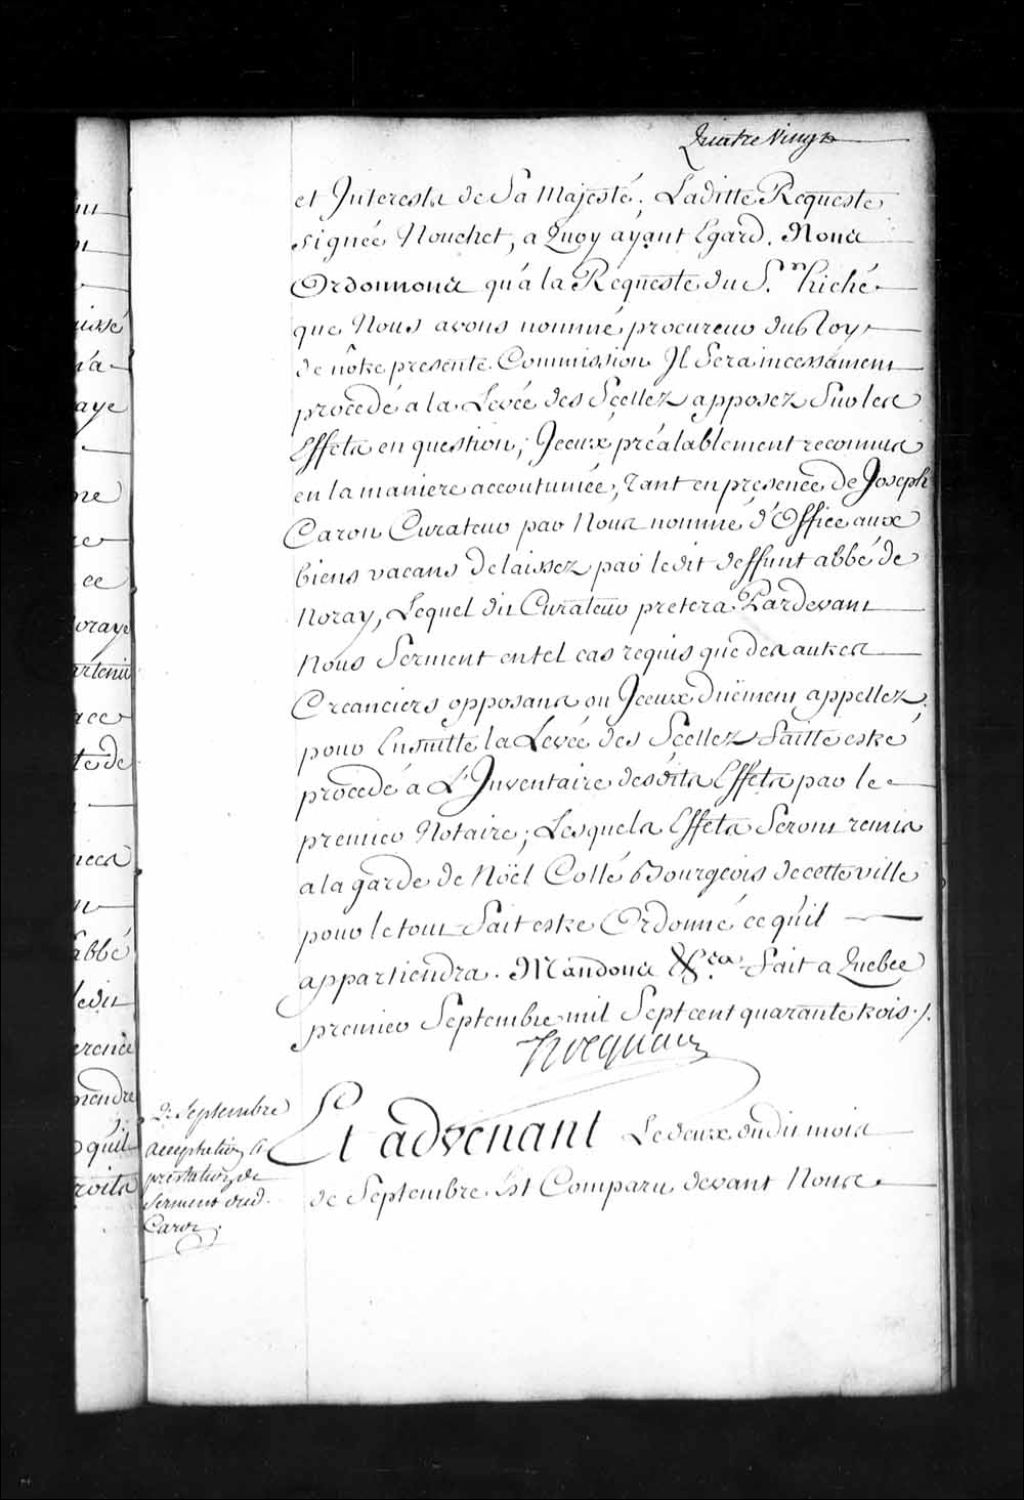 Quatre Vingt
et Interests de Sa Majesté; Laditte Requeste
signée Nouchet, a Quoy ayant Egard. Nous
Ordonnons qu'a la Requeste du S.r Hiché
que Nous avons nommé procureur du Roy
de nôtre presente Commission Il Sera incessament
procedé a la Levée des Scellez apposez Sur les
Effets en question; Iceux préalablement reconnus
en la maniere accoutumée, Tant en presence de Joseph
Caron Curateur par Nous nommé d'Office aux
biens vacans delaissez par ledit deffunt abbé de
Noray, Lequel dit Curateur pretera Pardevant
Nous Serment en tel cas requis que des autres
Creanciers opposans ou Iceux duëment appellez.
pour Ensuitte la Levée des Scellez Faitte estre
procedé a L'Inventaire desdits Effets par le
premier Notaire; Lesquels Effets Seront remis
a la garde de Noël Collé Bourgeois de cette ville
pour le tout Fait estre Ordonné ce qu'il
appartiendra. Mandons &c.a Fait a Quebec
premier Septembre mil Sept cent quarante trois ./.
Hocquart
Et advenant Le deux dudit mois
de Septembre Est Comparu devant Nous
2e Septembre
acceptation et
prestation de
Serment dud.
Caron.